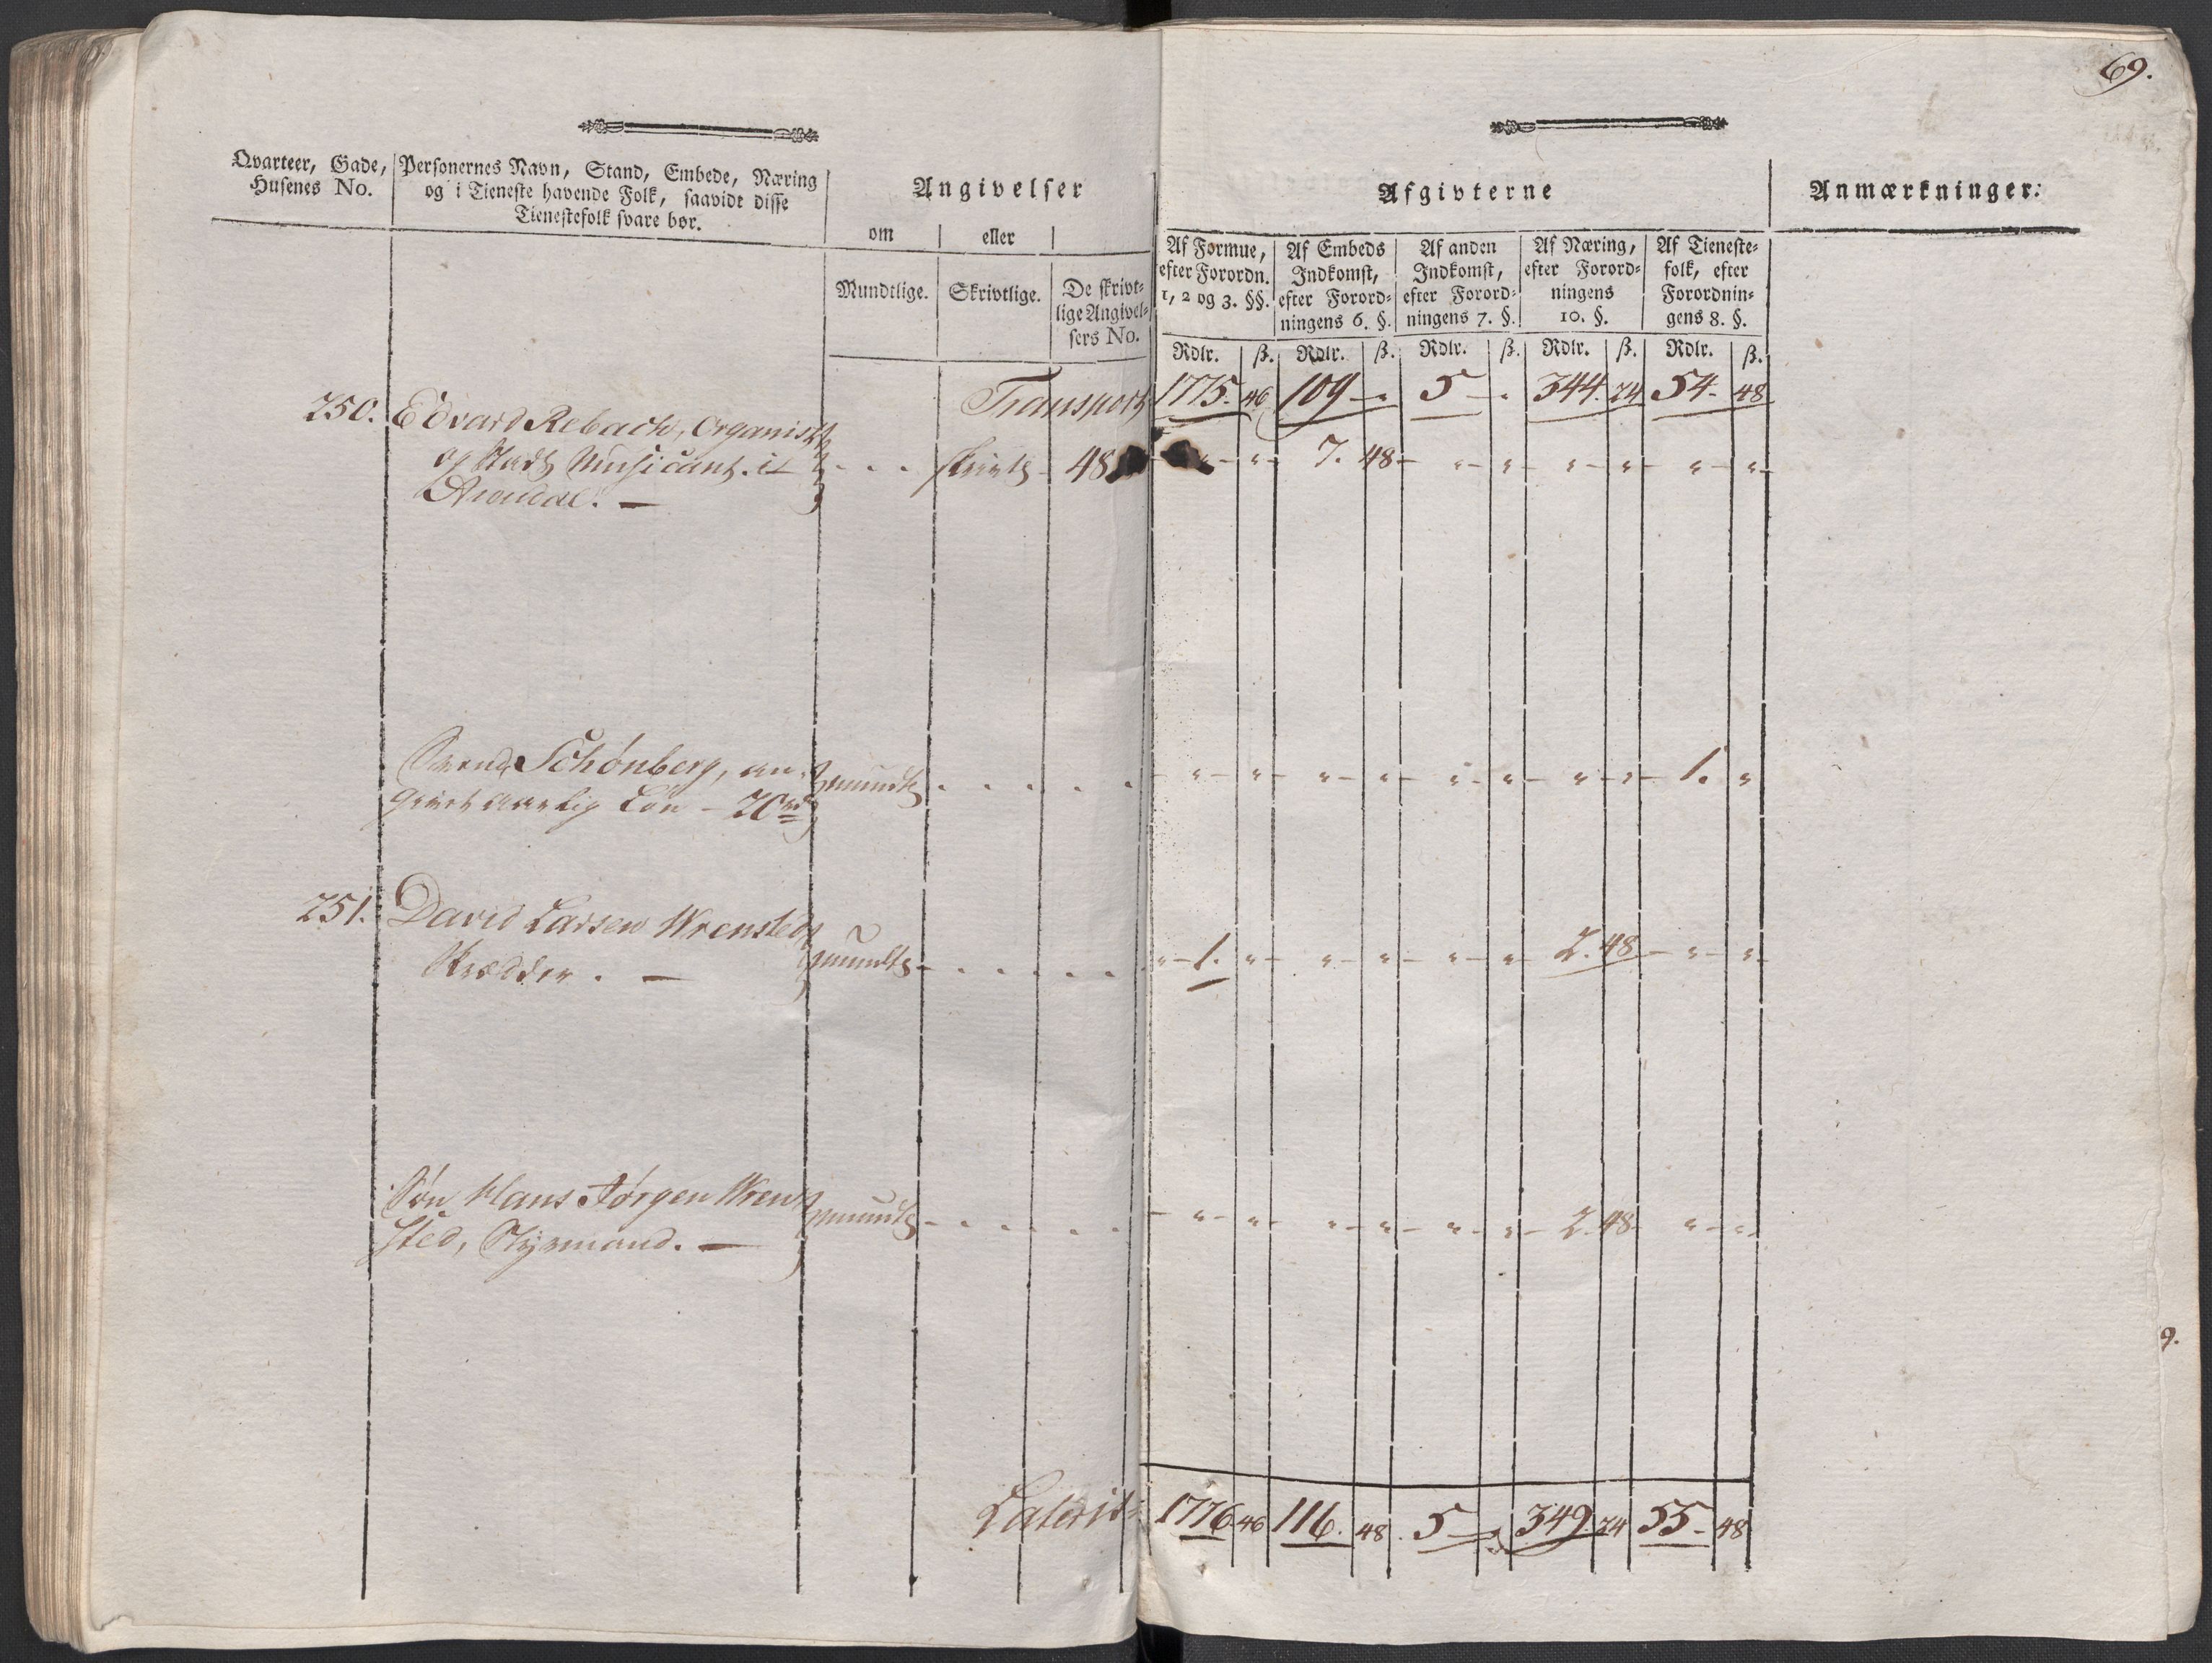 69.
Qvarteer, Gade,
Husenes No.
Personernes Navn, Stand, Embede, Næring
og i Tieneste havende Folk, saavidt disse
Tienestefolk svare bør.
Angivelser
om eller
Mundtlige. Skrivtlige. De skrivt-
lige Angivel-
sers No.
Afgivterne
Anmærkninger:
Af Formue,
efter Forordn.
1, 2 og 3. §§.
Af Embeds
Indkomst,
efter Forord-
ningens 6. §.
Af anden
Indkomst,
efter Forord-
ningens 7. §.
Af Næring,
efter Forord-
ningens
10. §.
Af Tieneste-
folk, efter
Forordnin-
gens 8. §.
Rdlr. ß. Rdlr. ß. Rdlr. ß. Rdlr. ß. Rdlr. ß.
Transport 1775. 46 109 - " 5 - " 344. 24 54. 48
250. Edvard Rebach, Organist
og Stads Musicant. i
Arendal. — skrivtl 48 " - " - 7. 48 - " - " - " - " - " - "
Svend Schønberg, an-
givet aarlig Løn - 20 rd mundtl " - " - " - " - " - " - " - " - 1. "
251. David Larsen Wrensted
Skrædder. — mundtl " - 1. " - " - " - " - " - 2. 48 - " - "
Søn Hans Jørgen Wren
sted, Styrmand. — mundtl - " - " - " - " - " - " - 2. 48 " - "
Lateris 1776 46 116. 48. 5 - " 349. 24 55 - 48
9.